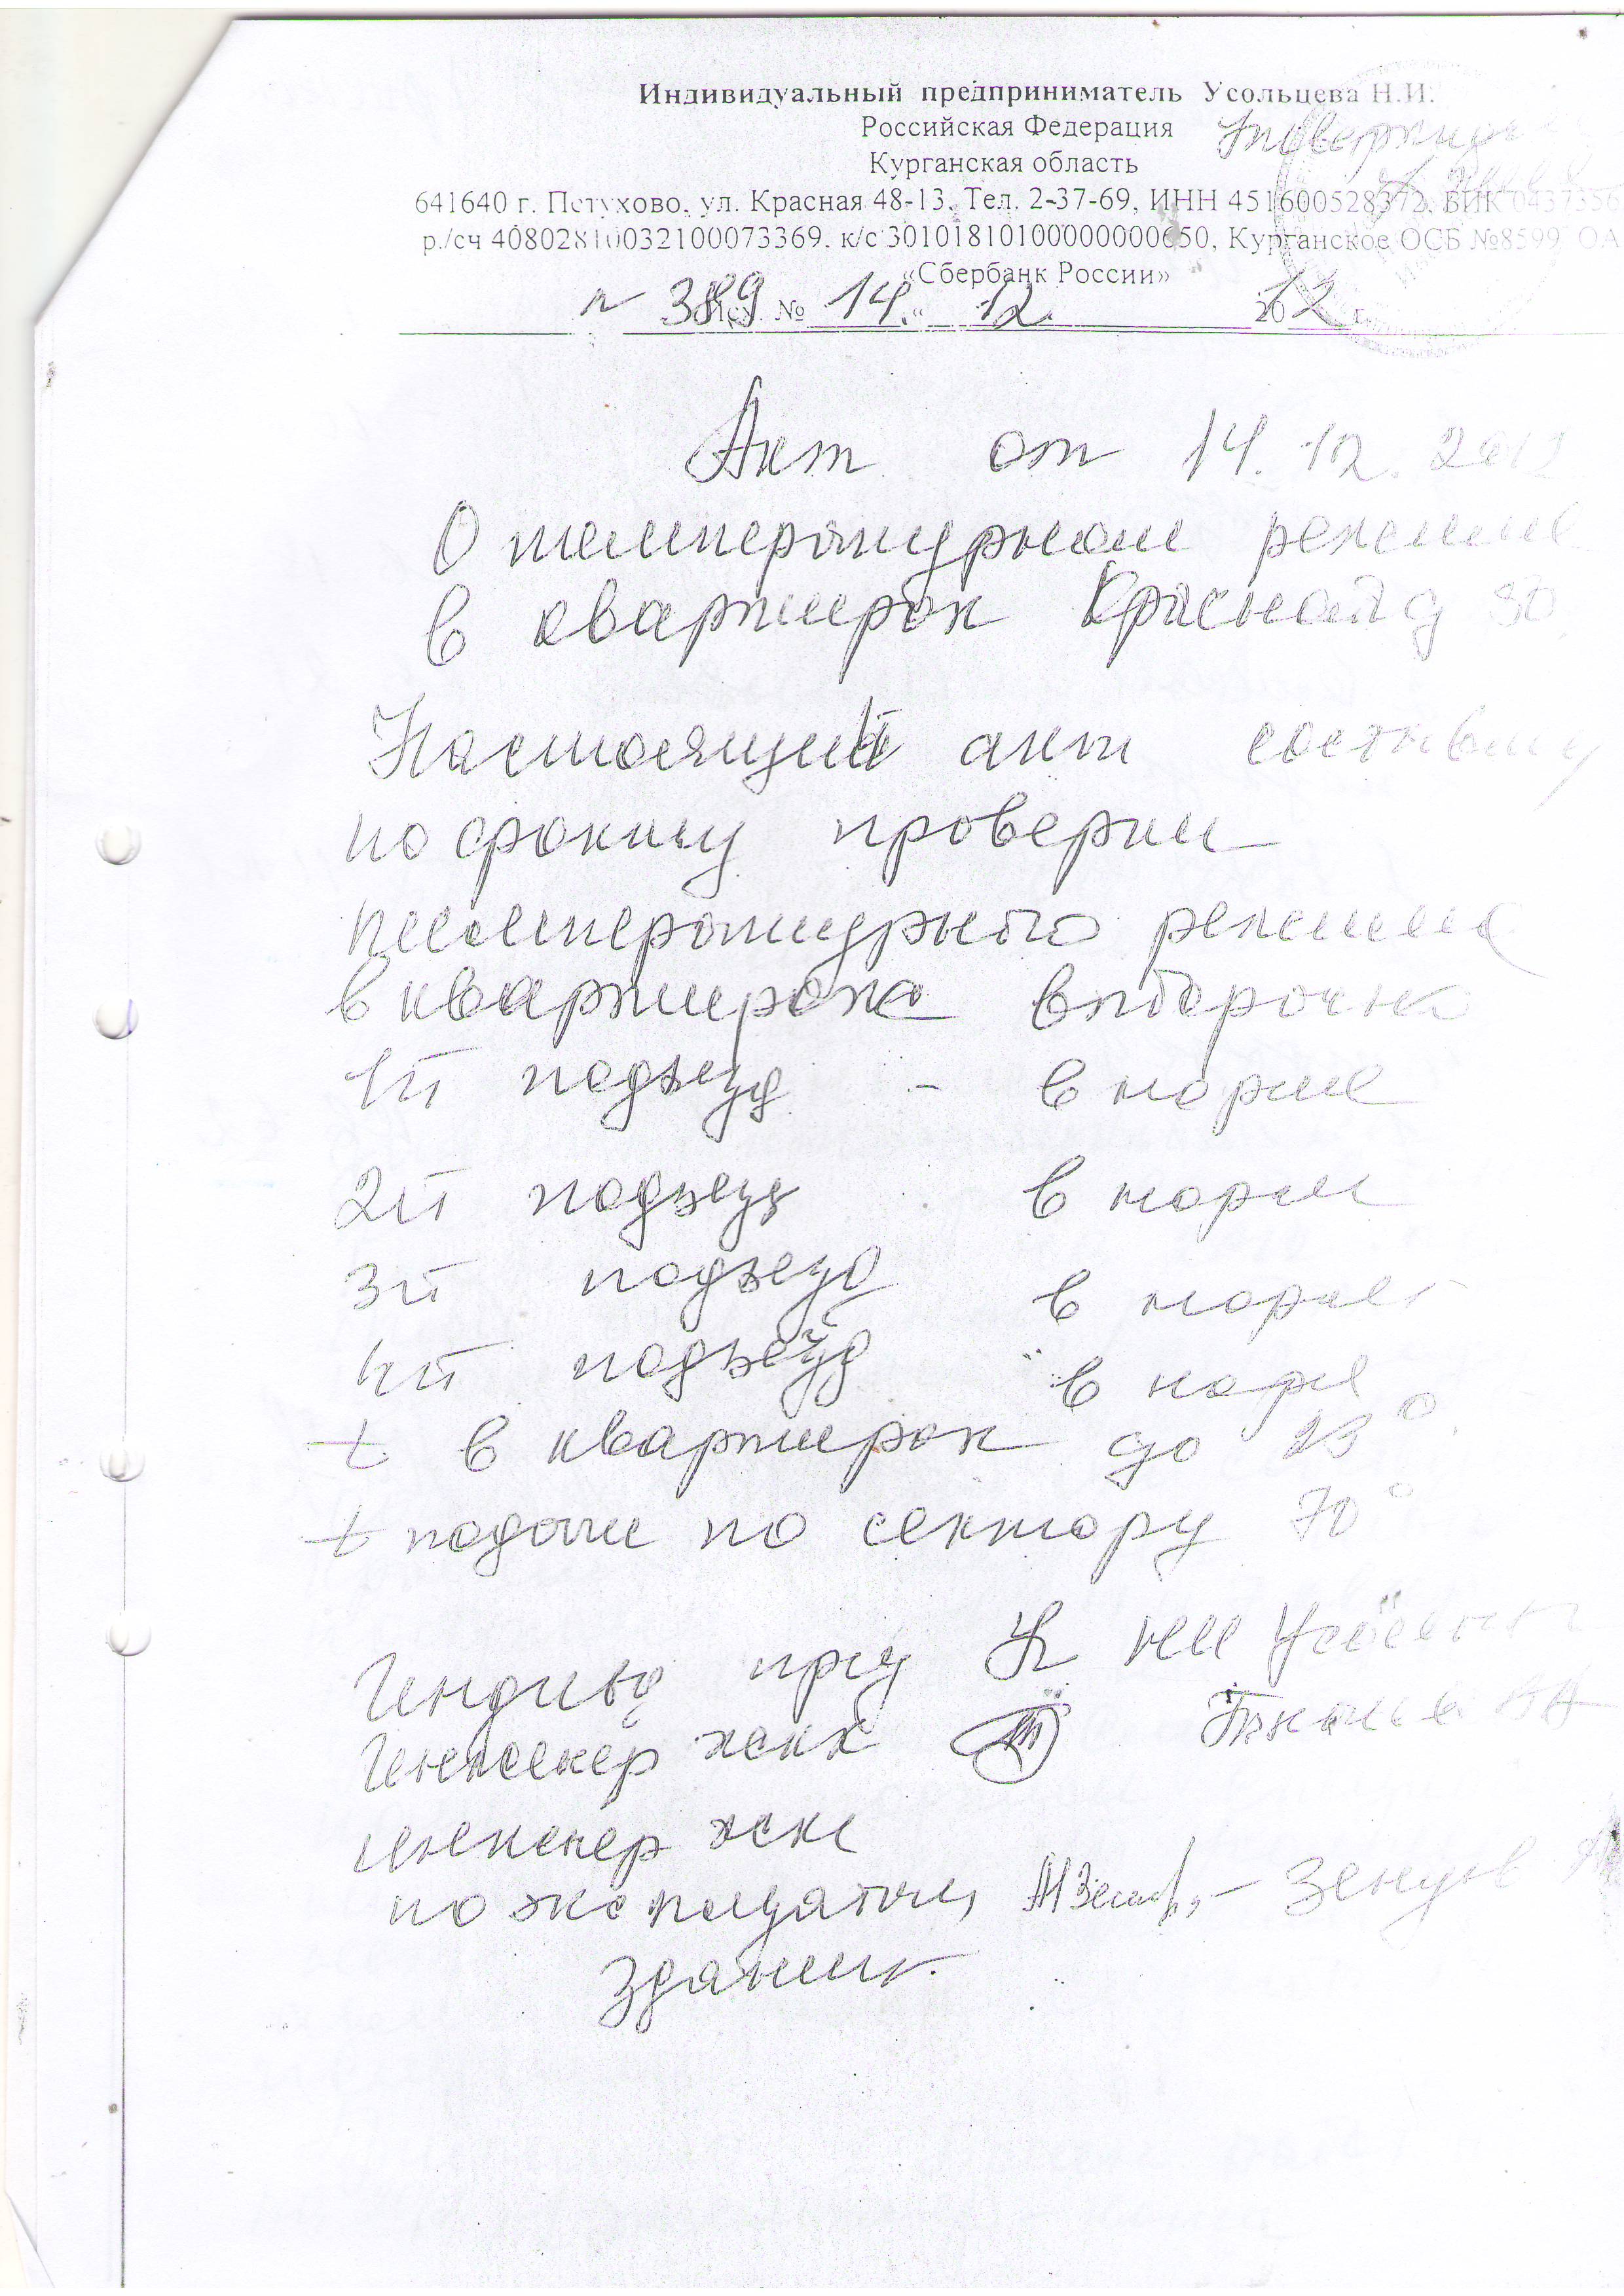 Индивидуальный предприниматель Усольцева Н.И.
Российская Федерация
Утверждаю
Курганская область
641640 г. Петухово, ул. Красная 48-13. Тел. 2-37-69, ИНН 451600528372, БИК 0437356
р./сч 40802810032100073369. к/с 30101810100000000650, Курганское ОСБ №8599 ОА
«Сбербанк России»
№ 389 Исх. № 14. « 12. 2012 г.
Акт от 14.12.2012
О температурном режиме
в квартирах Красная д 50
Настоящий акт составлен
по факту проверки
температурного режима
в квартирах выборочно
1й подъезд - в норме
2й подъезд в норме
3й подъезд в норме
4й подъезд в норме
t в квартирах до 23°
t подачи по сектору 70°
Индивид пред НИ Усольцева
Инженер жкх
инженер жкх
по эксплуатации Зенцов
зданий.